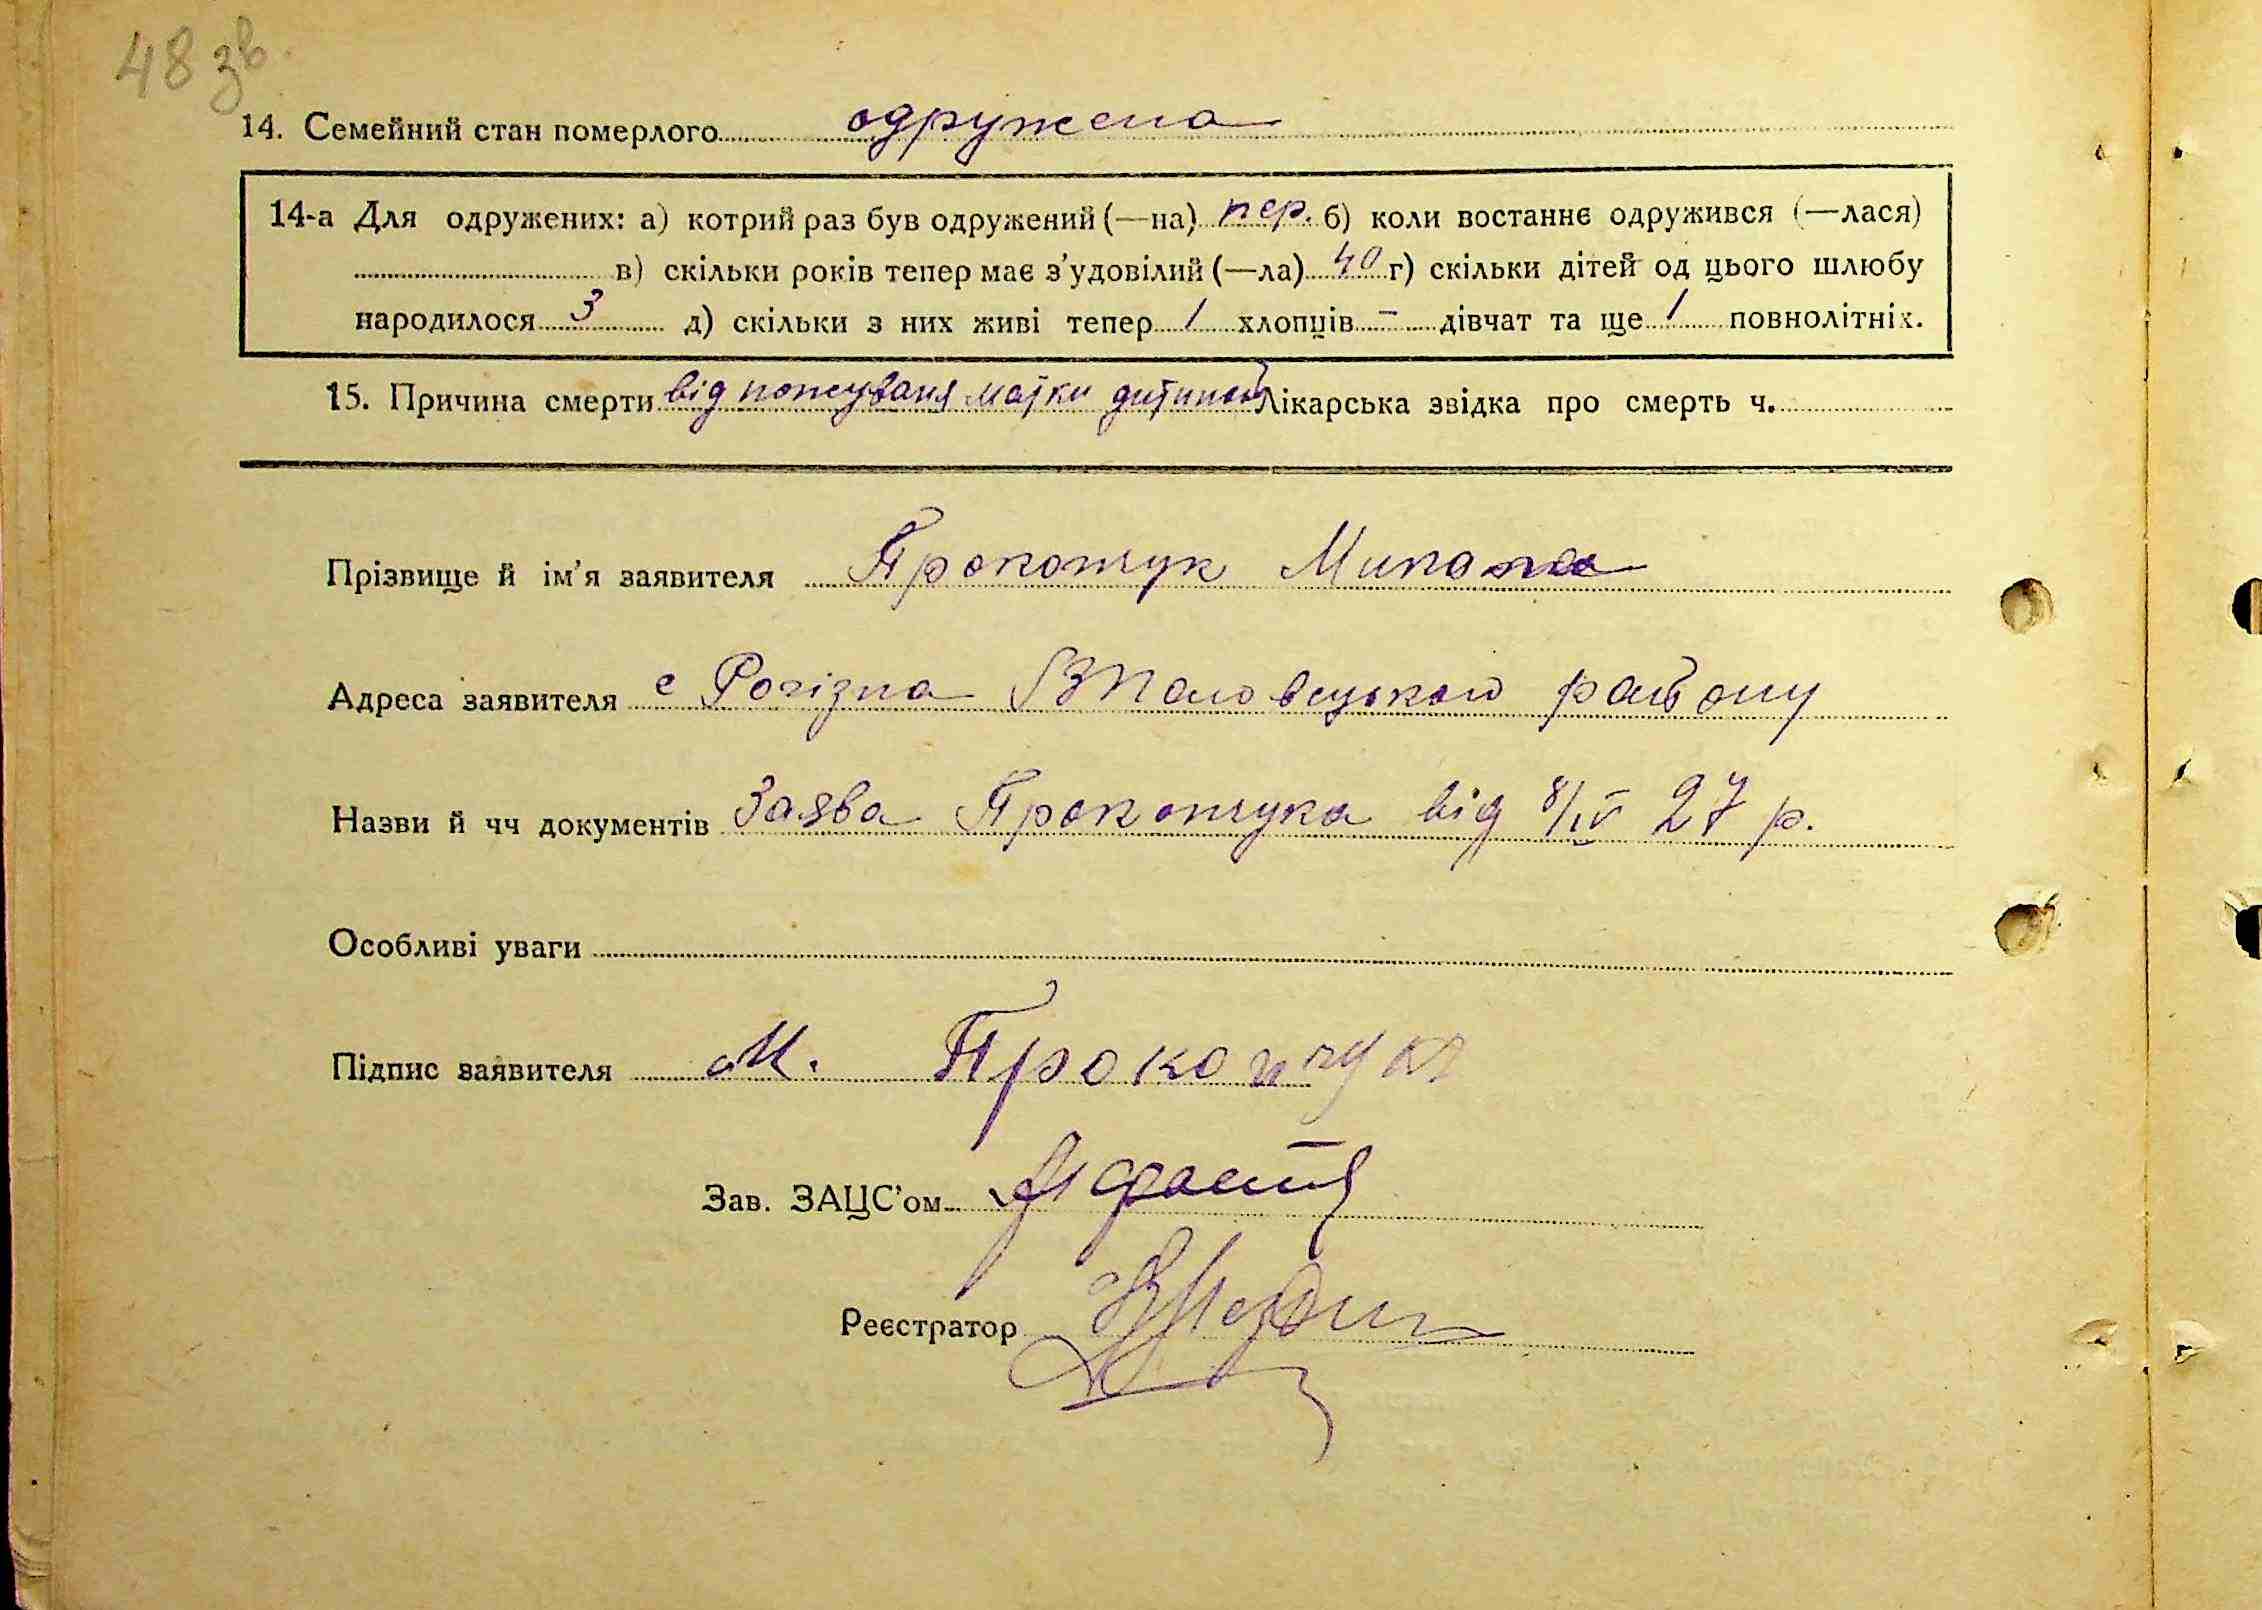 48 зв.
14. Семейний стан померлого одружена
14-а Для одружених: а) котрий раз був одружений (—на) пер. б) коли востаннє одружився (—лася)
в) скільки років тепер має з’удовілий (—ла) 40 г) скільки дітей од цього шлюбу
народилося 3 д) скільки з них живі тепер 1 хлопців - дівчат та ще 1 повнолітніх.
15. Причина смерти від матки дитиною Лікарська звідка про смерть ч.
Прізвище й ім’я заявителя Прокопчук
Адреса заявителя с Рогізна район у
Назви й чч документів Заява Прокопчука від 8/IV 27 р.
Особливі уваги
Підпис заявителя М. Прокопчук
Зав. ЗАЦС’ом
Реєстратор